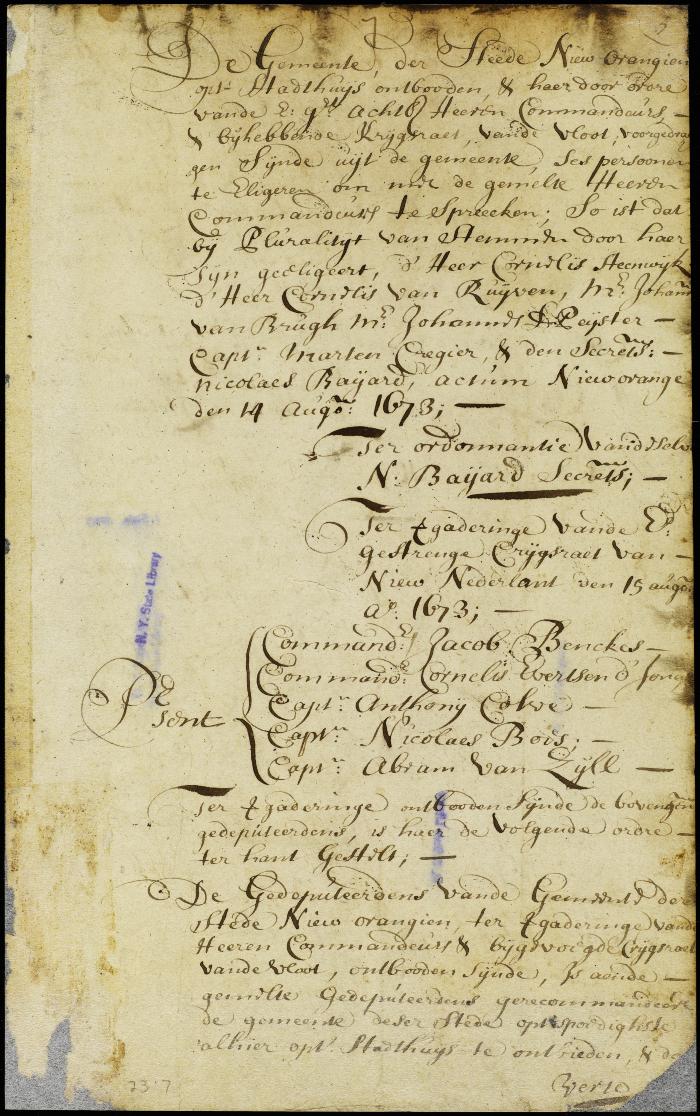 De Gemeente, der Stede Niew orangien
opt Stadthuijs ontbooden, & haer door ordre
vande E: gr achtb Heeren Commandeurs, —
& bijhebbende Krijgsraet, vande vloot, voorgedra
gen Sijnde uijt de gemeente, ses persoonen
te Eligeren om met de gemelte Heeren
Commandeurs te Spreecken; So ist dat
bij Pluralitijt van Stemmen door haer
sijn geëligeert, d' Heer Cornelis Steenwijk
d' Heer Cornelis van Ruijven, Mr: Johann
van Brugh Mr: Johannes de Peijster —
Capt: Marten Cregier, & den Secrets: —
Nicolaes Baijard, actum Niew orange
den 14 Augo: 1673; —
Ter ordonnantie vande selve
N: Baijard Secrets; —
Ter vgaderinge vande Ed:
gestrenge Crijgsraet van —
Niew Nederlant den 15 augo
Ao: 1673; —
N. Y. State Library
Command: Jacob Benckes —
Command: Cornelis Evertsen d' Jong
Present Capt: Anthony Colve —
Capt: Nicolaes Bois; —
Capt: Abram van Zijll —
Ter vgaderinge ontbooden Sijnde de boveng
gedeputeerdens, is haer de volgende ordre —
ter hant Gestelt; —
De Gedeputeerdens vande Gemeente der
Stede Niew orangien, ter vgaderinge vande
Heeren Commandeurs & bijgevoegde Crijgsraet
vande vloot, ontbooden sijnde, Is aende —
gemelte Gedeputeerdens gerecommandeert
de gemeente deser Stede opt spoedighste
alhier opt Stadthuijs te ontbieden, & de
verte
23 7